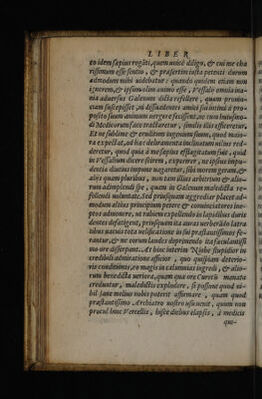 LIBER
to idem sæpius rogāti, quem unicè diligo, & cui me cha
rissimum esse sentio, & præsertim iusta petenti durum
admodum mihi uidebatur: quando quidem etiam non
ignorem, & ipsum olim animo esse, Vessalij omnia ina-
nia aduersus Galenum dicta refellere, quam prouin-
ciam suscepisset, ni dissuadentes amici sui intima à pro-
posito suum animum uergere fecissent, ne cum huiusmo-
di Medicorum face tractaretur, similis illis efficeretur.
Et ne sublime & eruditum ingenium suum, quod maio-
ra expectat, ad hæc deliramenta inclinatum uilius red-
deretur, quod quia à me sæpius efflagitatum fuit, quid
in Vessalium dicere scirem, experirer, ne ipsius impu-
dentia diutius impune uagaretur, sibi morem geram, &
alijs quam pluribus, non tam illius arbitrium & alio-
rum adimplendi spe, quam in Galenum maledicta re-
fellendi uoluntate. Sed priusquam aggrediar placet ad-
modum altius principium petere & conuiciatores ino-
pes admonere, ut rabiem expellendo in lapidibus duris
dentes defatigent, priusquam ita auras uerberādo latra
tibus uacuis tota uelificatione in sui præstantissimos fe-
rantur, & ne eorum laudes deprimendo ita facilimi si
no ore disserpant. At hoc interim Niobe stupidior in
credibili admiratione afficior, quo quispiam deterio-
ris conditionis, eo magis in calumnias ingredi, & alio-
rum benedicta uertere, quam qua ore Cureti manata
creduntur, maledictis explodere, si possent quod ni-
hil sane melius nobis potent affirmare, quam quod
præstantissimo Archiatro nostro usu uenit, quam non
procul hinc Vercellis, hisce diebus elapsis, à medicis
qui-